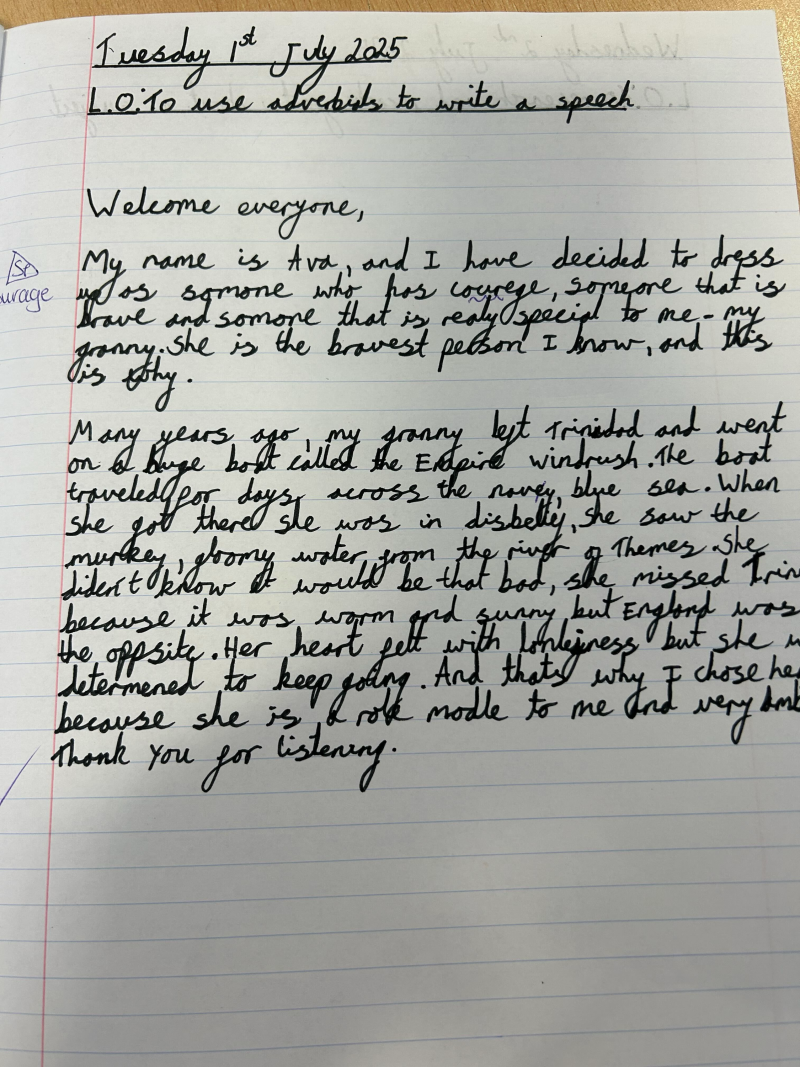 Tuesday 1st July 2025
L.O: To use adverbials to write a speech
Welcome everyone,
My name is Ava, and I have decided to dress
up as somone who has courege, someone that is
Sp
urage
brave and somone that is realy special to me - my
granny. She is the bravest person I know, and this
is why.
Many years ago, my granny left Trinidad and went
on a huge boat called the Empire windrush. The boat
traveled for days, across the navey, blue sea. When
she got there she was in disbelfy, she saw the
murkey, gloomy water from the river of Themes. She
diden't know it would be that bad, she missed Trin
because it was warm and sunny but England was
the oppsite. Her heart felt with lonlejness but she
determened to keep going. And thats why I chose her
because she is a role modle to me and very
Thank you for listening.